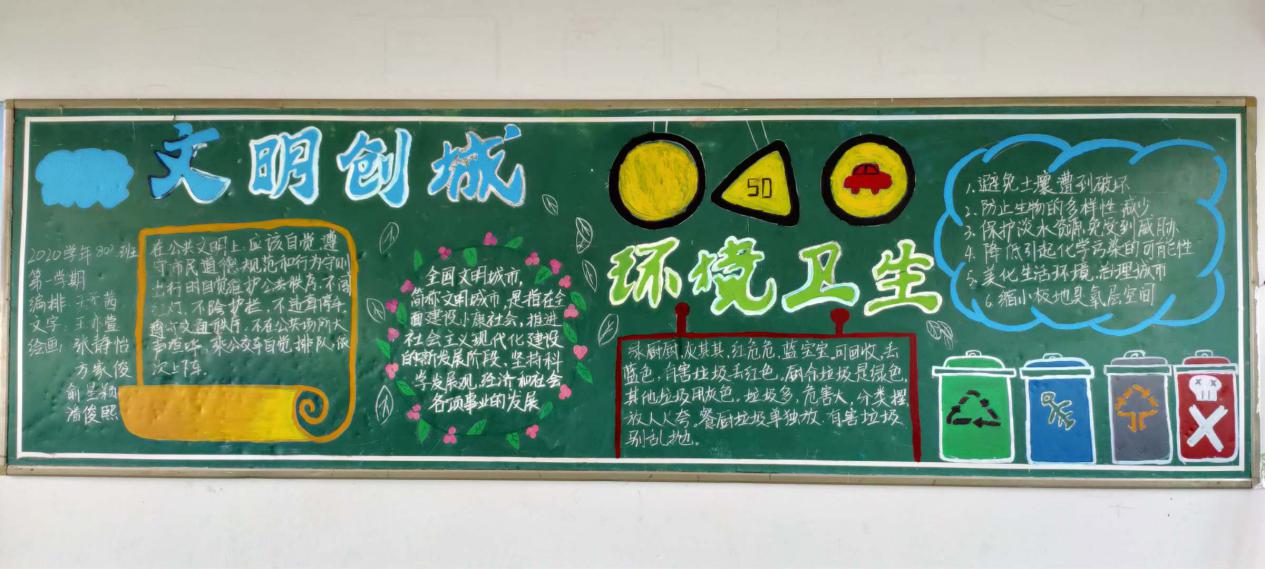 文明创城
2020学年802班
第一学期
编排
文字:王亦萱
绘画:张静怡
方家俊
俞星颖
潘俊熙
在公共文明上,应该自觉遵
守市民道德规范和行为守则
出行时自觉维护公共秩序,不闯
红灯,不跨护栏,不违章停车
遵守交通秩序,不在公共场所大
声喧哗,乘公交车自觉排队,依
次上下车。
全国文明城市,
简称文明城市,是指在全
面建设小康社会,推进
社会主义现代化建设
的新发展阶段,坚持科
学发展观,经济和社会
各项事业的发展
50
环境卫生
绿厨厨,灰其其,红危危,蓝宝宝,可回收,去
蓝色,有害垃圾去红色,厨余垃圾是绿色,
其他垃圾用灰色。垃圾多,危害大,分类摆
放人人夸。餐厨垃圾单独放,有害垃圾
别乱抛。
1.避免土壤遭到破坏
2.防止生物的多样性减少
3.保护淡水资源,免受到威胁
4.降低引起化学污染的可能性
5.美化生活环境,治理城市
6.缩小极地臭氧层空间